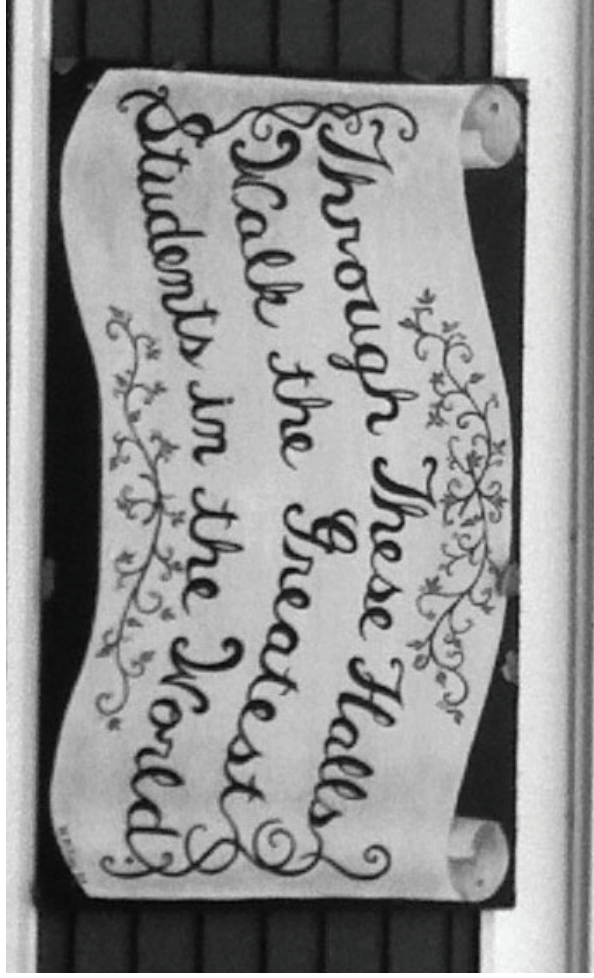 Through These Halls
Walk the Greatest
Students in the World